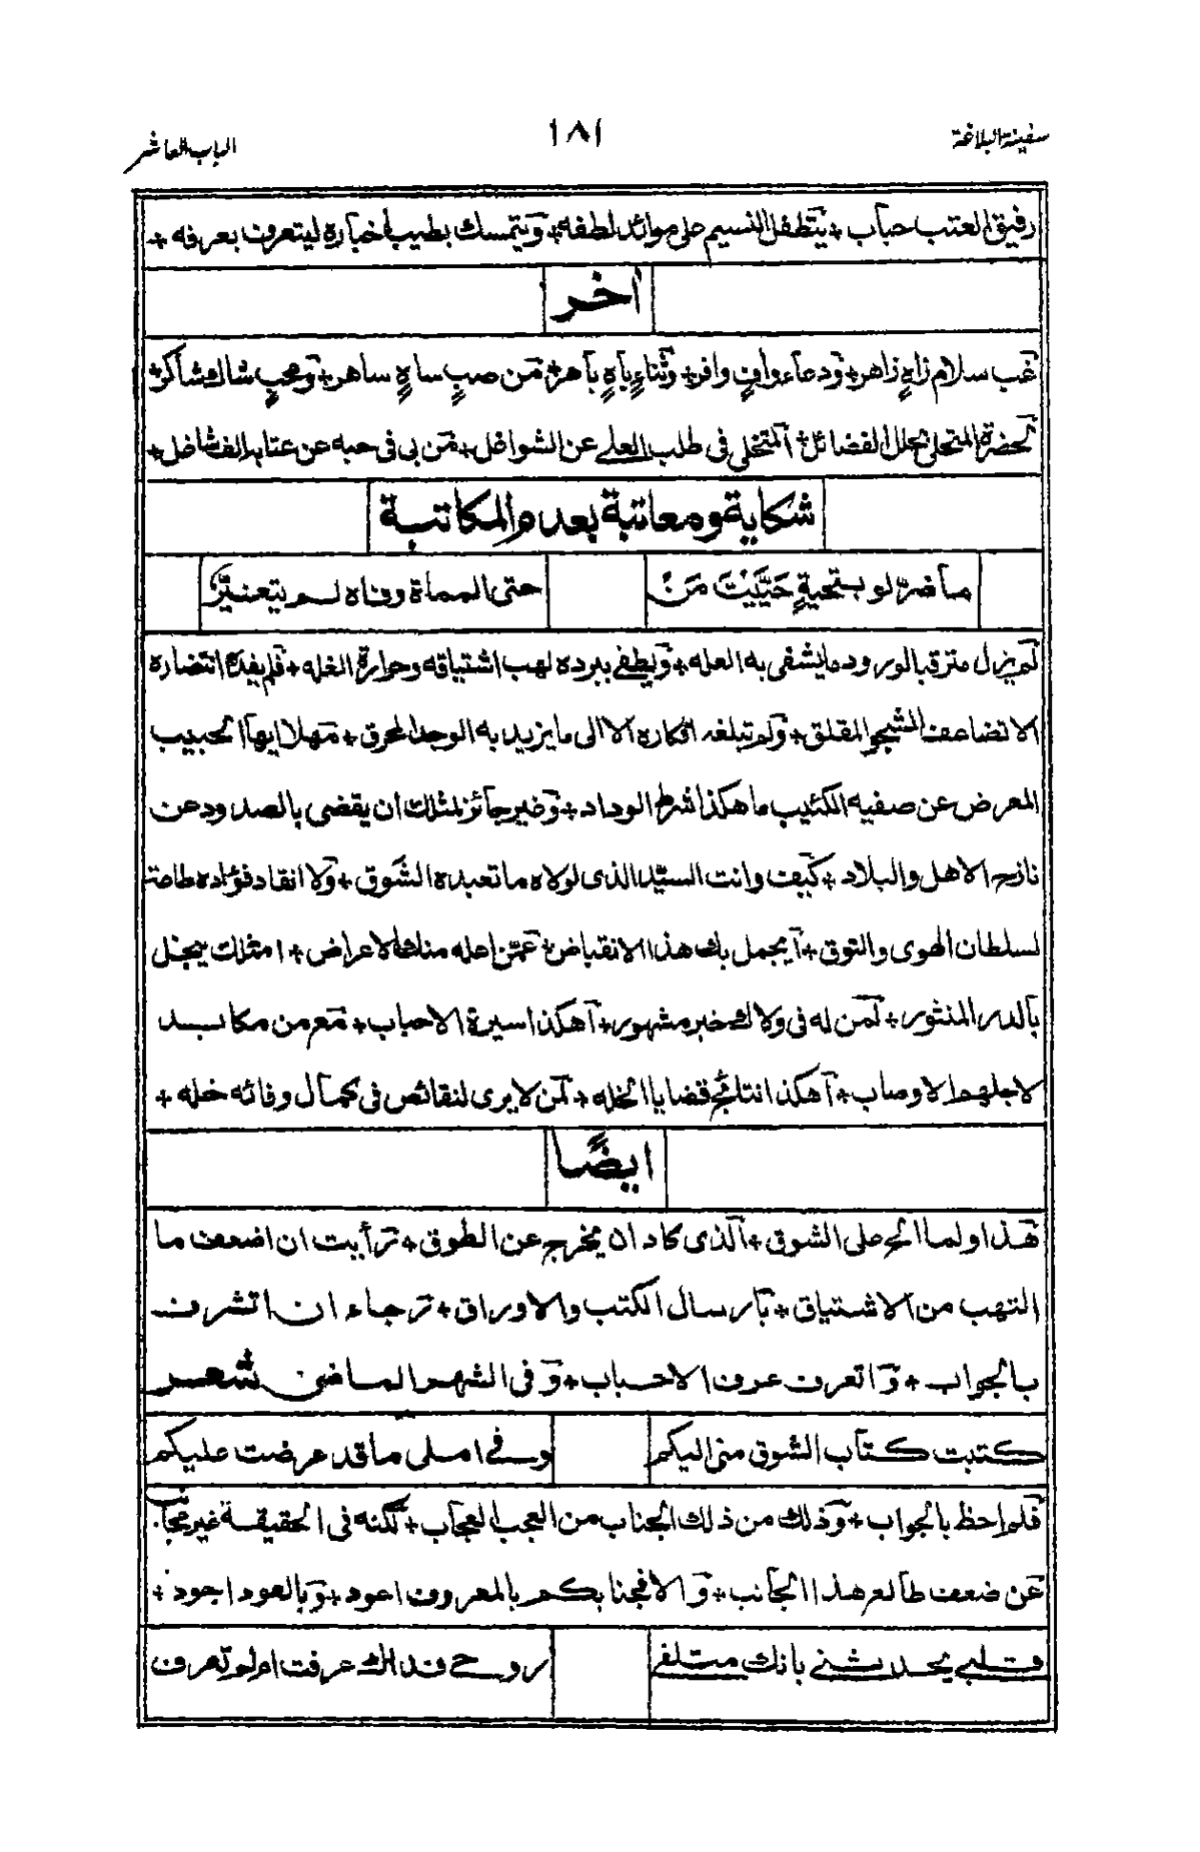 سفينة البلاغة
١٨١
الباب العاشر
رقيق العتب حباب + يتطفل النسيم على موائد لطفه + ويتمسك بطيب أخباره ليتعرف بعرفه +
أخر
غب سلام زاهٍ زاهر + ودعاء وافٍ وافر + وثناءٍ باهٍ باهر + من صبٍ ساهٍ ساهر + ومحبٍ شاك شاكر +
لحضرة المتحلى بحلل الفضائل + المتخلى فى طلب العلى عن الشواغل + من بى فى حبه عن عتابه الف شاغل +
شكاية ومعاتبة بعدم المكاتبة
ما ضرّ لو بتحيةٍ حَيَّيْتَ مَنْ
حتى الممات وفاه لم يتغيّر
لم يزل مترقبا لورود ما يشفى به العله + ويطفى ببرده لهب اشتياقه وحرارة الغله + فلم يفده انتضاره
الا تضاعف الشجو المقلق + ولم تبلغه افكاره الا الى ما يزيد به الوجد المحرق + مهلا ايها الحبيب
المعرض عن صفيه الكئيب ما هكذا شرط الوداد + وغير جائز لمثلك ان يقضى بالصدود عن
نازح الاهل والبلاد + كيف وانت السيّد الذى لولاه ما تعبده الشوق + ولا انقاد فؤاده طاعة
لسلطان الهوى والتوق + أيجمل بك هذا الانقباض + عمّن امله منك الاعراض + امثلك يبخل
بالدر المنثور + لمن له فى ولاك خبر مشهور + أهكذا سيرة الاحباب + مع من مكابد
لاجلهم الاوصاب + أهكذا نتائج قضايا الخله + لمن لا يرى لنقائص فى كمال وفائه خله +
ايضًا
هذا ولما الح على الشوق + الذى كاد ان يخرج عن الطوق + رأيت ان اضعف ما
التهب من الاشتياق + بارسال الكتب والاوراق + رجاء ان اتشرف
بالجواب + واتعرف عرف الاحباب + وفى الشهر الماضى شعر
كتبت كتاب الشوق منى اليكم
وفى املى ما قد عرضت عليكم
فلم احظ بالجواب + وذلك من ذلك الجناب من العجب العجاب + لكنه فى الحقيقة غير مجاب
عن ضعف طالع هذا الجانب + والا فجنابكم بالمعروف اعود + وبالعود اجود +
قلبى يحدثنى بانك متلفى
روحى فداك عرفت ام لم تعرف